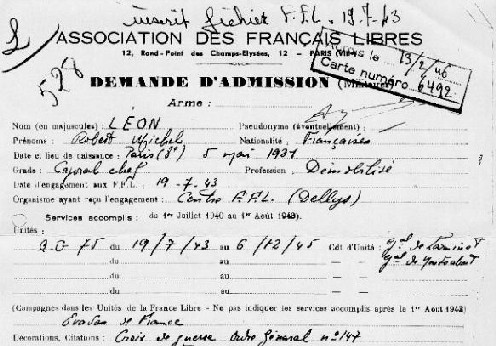 inscrit fichier F.F.L. 19-7-43
ASSOCIATION DES FRANÇAIS LIBRES
12, Rond-Point des Champs-Elysées, 12 — PARIS
le 13/2/46
Carte numéro 6492
528
DEMANDE D'ADMISSION
Arme :
Nom (en majuscules) : LÉON Pseudonyme (éventuellement) :
Prénoms : Robert Michel Nationalité : Française
Date et lieu de naissance : Paris 5 mai
Grade : Caporal chef Profession : Démobilisé
Date d'engagement aux F.F.L. 19-7-43
Organisme ayant reçu l'engagement : Centre F.F.L. (Dellys)
Services accomplis : du 1er Juillet 1940 au 1er Août 1943).
Unités :
75 du 19/7/43 au 6/12/45 Cdt d'Unité :
(Campagnes dans les Unités de la France Libre — Ne pas indiquer les services accomplis après le 1er Août 1943)
Evadé de France
Décorations, Citations : Croix de guerre Ordre général n° 147